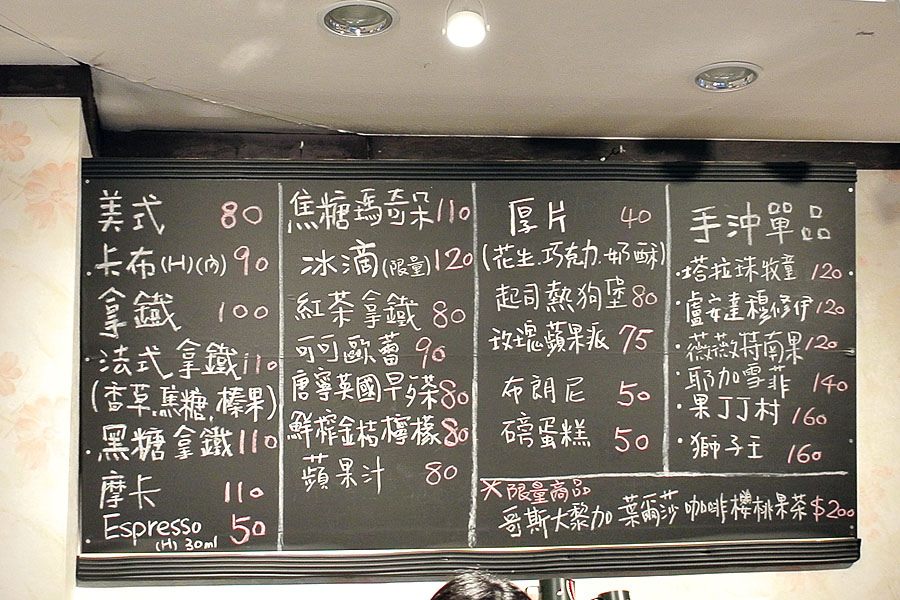 美式 80
卡布(H)(內) 90
拿鐵 100
法式拿鐵 110
(香草.焦糖.榛果)
黑糖拿鐵 110
摩卡 110
Espresso 50
(H) 30ml
焦糖瑪奇朵 110
冰滴(限量) 120
紅茶拿鐵 80
可可歐蕾 90
唐寧英國早茶 80
鮮榨金桔檸檬 80
蘋果汁 80
厚片 40
(花生.巧克力.奶酥)
起司熱狗堡 80
玫瑰蘋果派 75
布朗尼 50
磅蛋糕 50
手沖單品
·塔拉珠牧童 120
·盧安達穆修伊 120
·薇薇特南果 120
·耶加雪菲 140
·果丁丁村 160
·獅子王 160
※限量商品
哥斯大黎加 葉爾莎 咖啡櫻桃果茶 $200